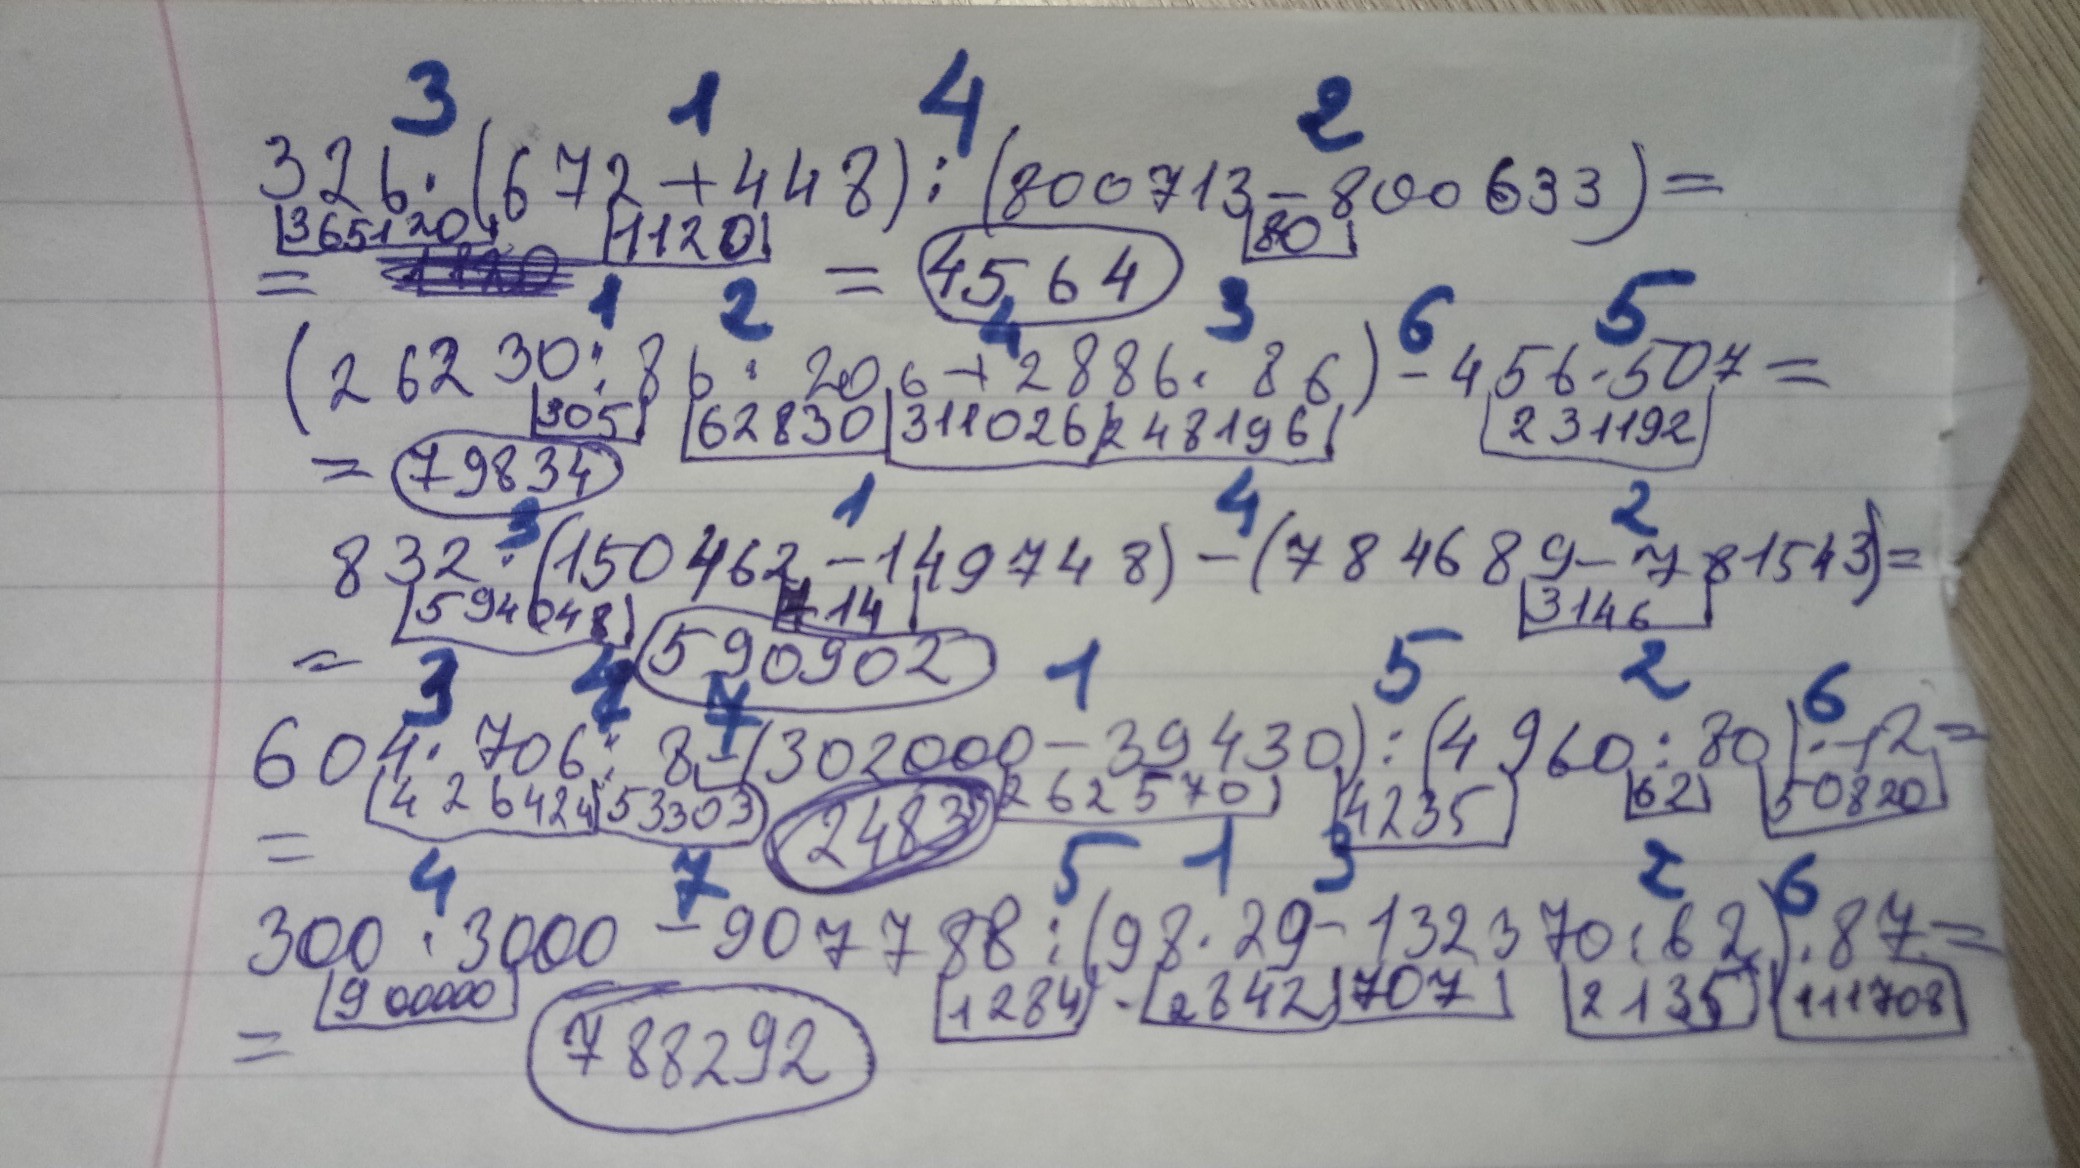 3 1 4 2
326·(672+448):(800713-800633)=
365120 1120 80
= = 4564
1 2 4 3 6 5
(26230:86·206+2886·86)-456·507=
305 62830 311026 248196 231192
= 79834
3 1 4 2
832·(150462-149748)-(784689-781543)=
594048 714 3146
= 590902
3 4 7 1 5 2 6
604·706:8-(302000-39430):(4960:80)·12=
426424 53303 262570 4235 62 50820
= 2483
4 7 5 1 3 2 6
300·3000-907788:(98·29-132370:62)·87=
900000 1284 2842 707 2135 111708
= 788292